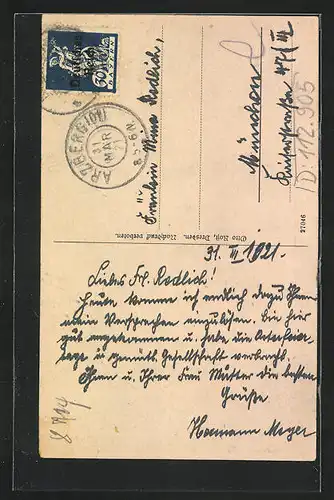 Deutsches
Reich
60
BAYERN
ARZBERG (Ofr.)
31
MÄR
21
8-9 V.
Fräulein Mina Redlich,
München
47/III
D 112.905
Otto Roß, Dresden. Nachdruck verboten.
27046
31. III 1921.
Liebes Frl. Redlich!
Heute komme ich endlich dazu Ihnen
mein Versprechen einzulösen. Bin hier
gut angekommen u. habe die Osterfeier-
tage in gemütl. Gesellschaft verbracht.
Ihnen u. Ihrer Frau Mutter die besten
Grüße
Hermann Meyer